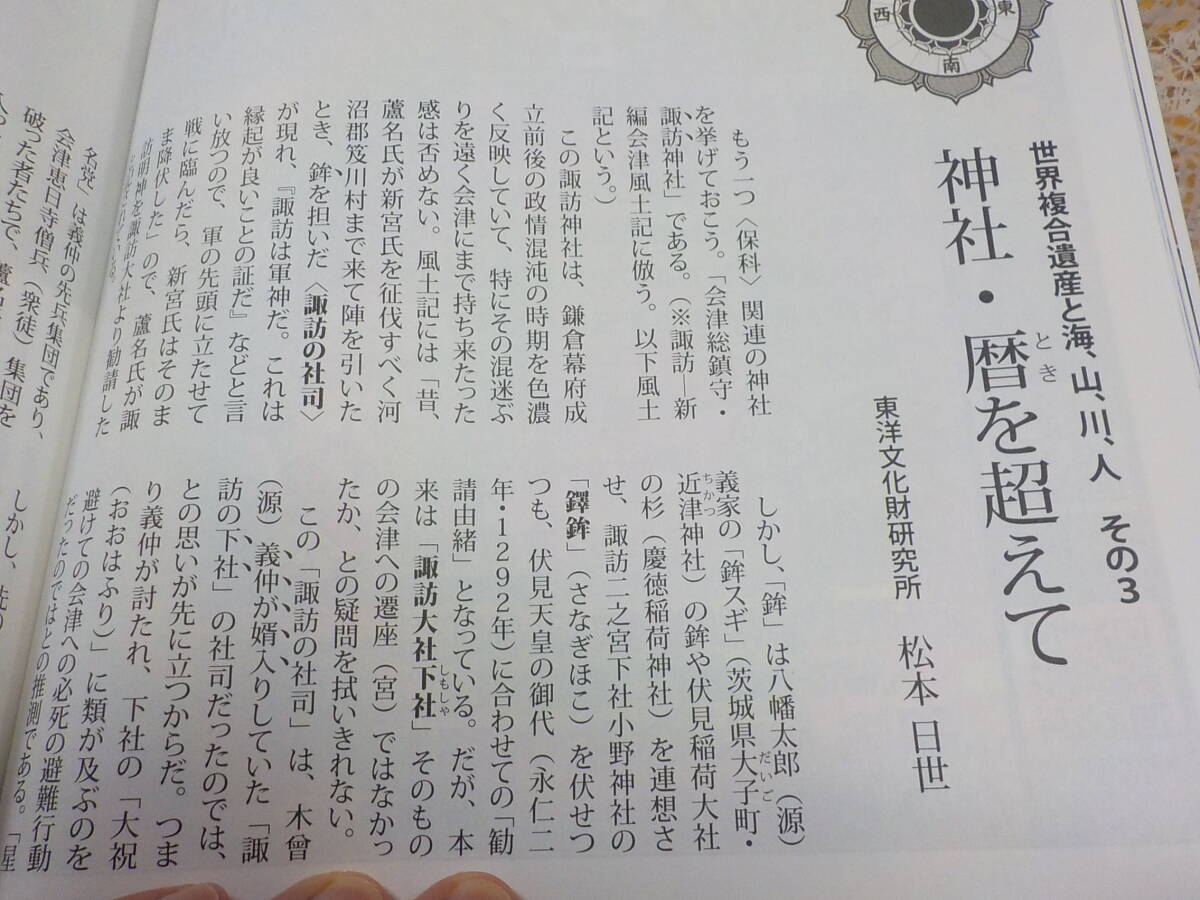 東
西
南
世界複合遺産と海、山、川、人 その3
神社・暦を超えて
とき
東洋文化財研究所 松本日世
もう一つ〈保科〉関連の神社
を挙げておこう。「会津総鎮守・
諏訪神社」である。(※諏訪―新
編会津風土記に倣う。以下風土
記という。)
この諏訪神社は、鎌倉幕府成
立前後の政情混沌の時期を色濃
く反映していて、特にその混迷ぶ
りを遠く会津にまで持ち来たった
感は否めない。風土記には「昔、
蘆名氏が新宮氏を征伐すべく河
沼郡笈川村まで来て陣を引いた
とき、鉾を担いだ〈諏訪の社司〉
が現れ、『諏訪は軍神だ。これは
縁起が良いことの証だ』などと言
い放つので、軍の先頭に立たせて
戦に臨んだら、新宮氏はそのま
ま降伏した」ので、蘆名氏が諏
訪明神を諏訪大社より勧請した
は義仲の先兵集団であり、
会津恵日寺僧兵(衆徒)集団を
破った者たちで、
しかし、「鉾」は八幡太郎(源)
義家の「鉾スギ」(茨城県大子町・
だいご
近津神社)の鉾や伏見稲荷大社
ちかつ
の杉(慶徳稲荷神社)を連想さ
せ、諏訪二之宮下社小野神社の
「鐸鉾」(さなぎほこ)を伏せつ
つも、伏見天皇の御代(永仁二
年・1292年)に合わせての「勧
請由緒」となっている。だが、本
来は「諏訪大社下社」そのもの
しもしゃ
の会津への遷座(宮)ではなかっ
たか、との疑問を拭いきれない。
この「諏訪の社司」は、木曾
(源)義仲が婿入りしていた「諏
訪の下社」の社司だったのでは、
との思いが先に立つからだ。つま
り義仲が討たれ、下社の「大祝
(おおはふり)」に類が及ぶのを
避けての会津への必死の避難行動
だったのではとの推測である。「星
しかし、